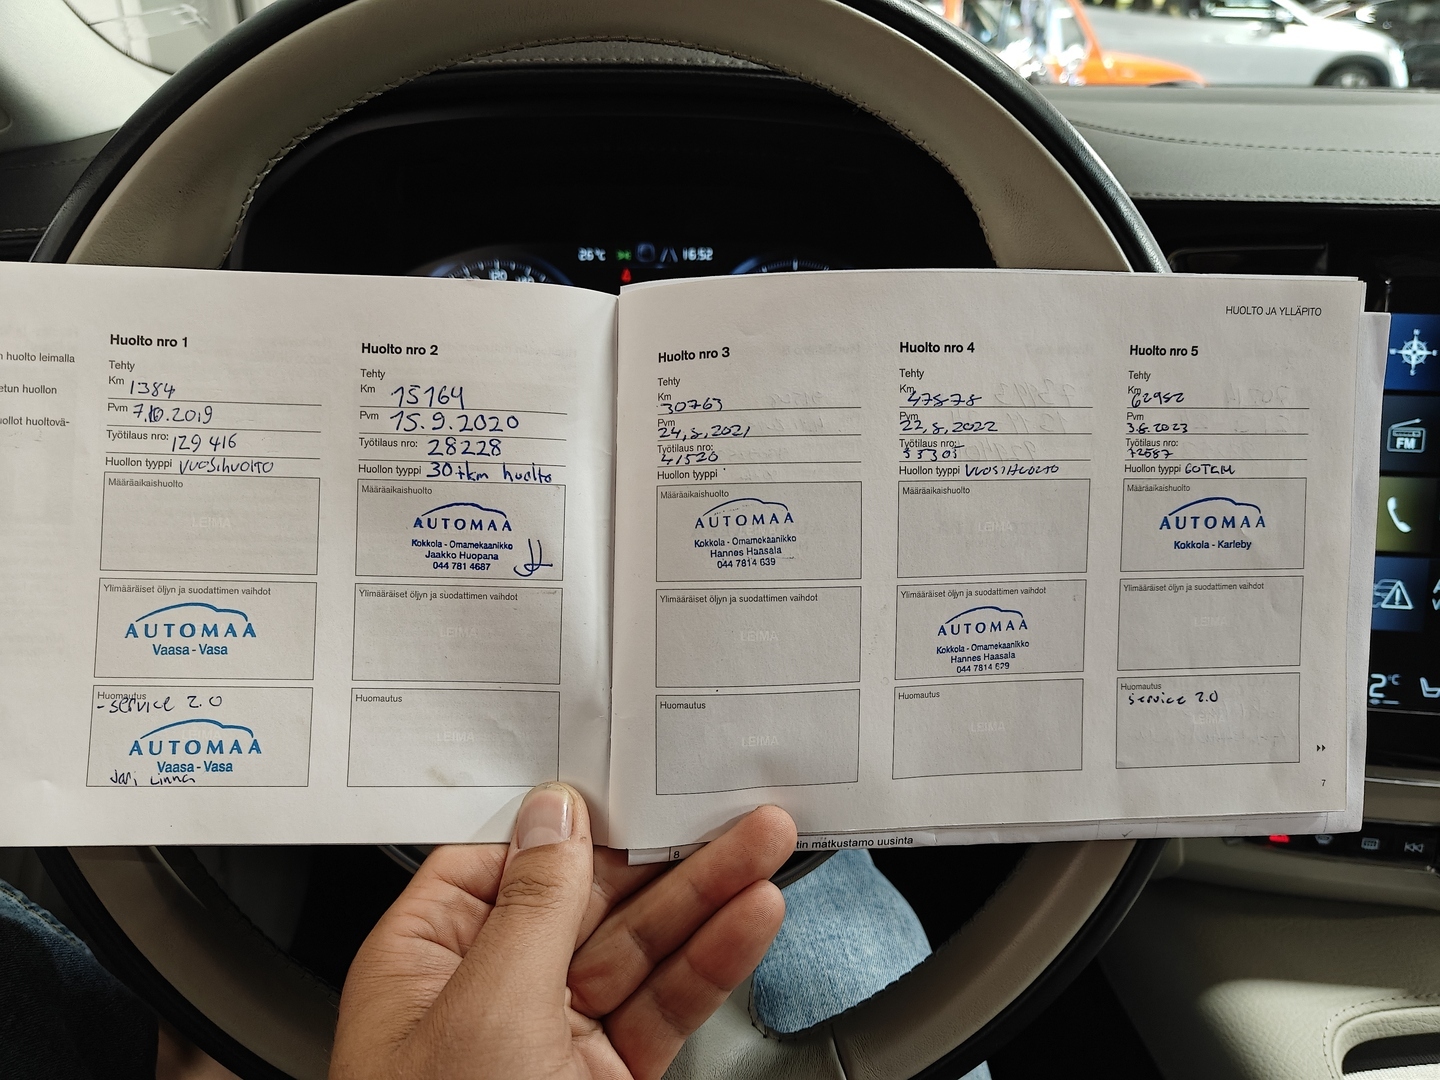 26°C 16:52
n huolto leimalla
etun huollon
uollot huoltovä-
Huolto nro 1
Tehty
Km 1384
Pvm 7.10.2019
Työtilaus nro: 129 416
Huollon tyyppi VUOSIHUOLTO
Määräaikaishuolto
LEIMA
Ylimääräiset öljyn ja suodattimen vaihdot
AUTOMAA
Vaasa - Vasa
Huomautus
- service 2.0
AUTOMAA
Vaasa - Vasa
Jari Linna
Huolto nro 2
Tehty
Km 15164
Pvm 15.9.2020
Työtilaus nro: 28228
Huollon tyyppi 30tkm huolto
Määräaikaishuolto
AUTOMAA
Kokkola - Omamekaanikko
Jaakko Huopana
044 781 4687
Ylimääräiset öljyn ja suodattimen vaihdot
LEIMA
Huomautus
LEIMA
HUOLTO JA YLLÄPITO
Huolto nro 3
Tehty
Km 30763
Pvm 24.8.2021
Työtilaus nro: 41526
Huollon tyyppi
Määräaikaishuolto
AUTOMAA
Kokkola - Omamekaanikko
Hannes Haasala
044 7814 639
Ylimääräiset öljyn ja suodattimen vaihdot
LEIMA
Huomautus
LEIMA
Huolto nro 4
Tehty
Km 47878
Pvm 22.8.2022
Työtilaus nro:
Huollon tyyppi VUOSIHUOLTO
Määräaikaishuolto
LEIMA
Ylimääräiset öljyn ja suodattimen vaihdot
AUTOMAA
Kokkola - Omamekaanikko
Hannes Haasala
044 7814 639
Huomautus
LEIMA
Huolto nro 5
Tehty
Km 62952
Pvm 3.8.2023
Työtilaus nro: 72587
Huollon tyyppi 60TKM
Määräaikaishuolto
AUTOMAA
Kokkola - Karleby
Ylimääräiset öljyn ja suodattimen vaihdot
LEIMA
Huomautus
service 2.0
LEIMA
7
8
tin matkustamo uusinta
FM